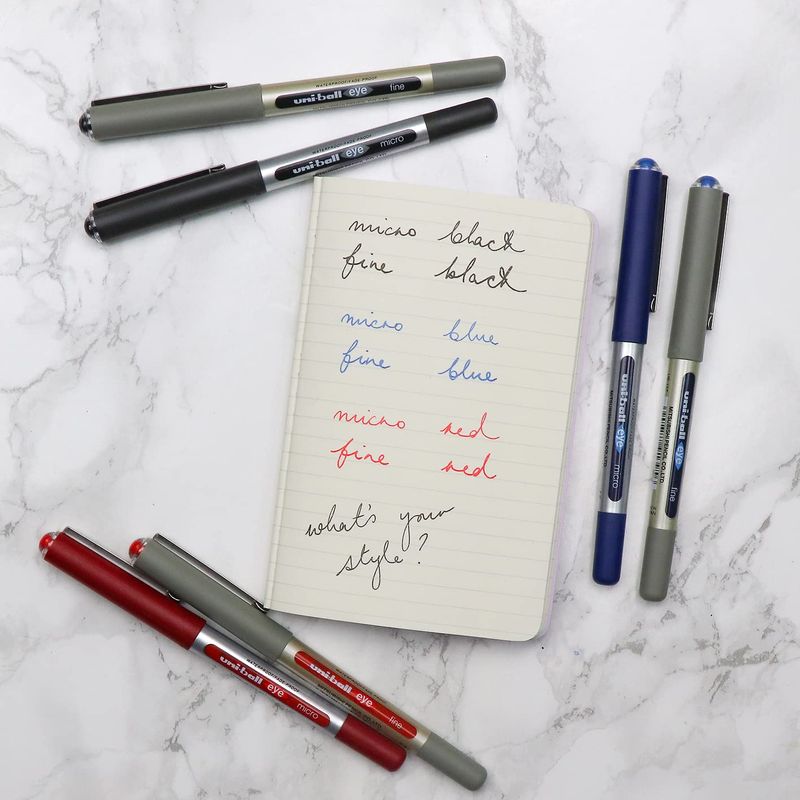 WATERPROOF/FADE PROOF
uni-ball eye fine
WATERPROOF/FADE PROOF
uni-ball eye micro
micro black
fine black
micro blue
fine blue
micro red
fine red
what's your
style?
uni-ball eye micro
MITSUBISHI PENCIL CO.,LTD.
uni-ball eye fine
MITSUBISHI PENCIL CO.,LTD.
uni-ball eye micro
WATERPROOF/FADE PROOF
uni-ball eye fine